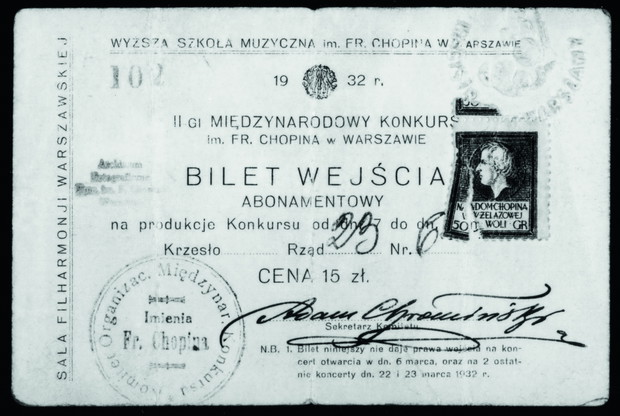 WYŻSZA SZKOŁA MUZYCZNA im. FR. CHOPINA W WARSZAWIE
102
1932 r.
II-GI MIĘDZYNARODOWY KONKURS
im. FR. CHOPINA w WARSZAWIE
BILET WEJŚCIA
ABONAMENTOWY
na produkcje Konkursu od dn. 7 do dn.
Krzesło Rząd 23 Nr. 6
CENA 15 zł.
Adam Chromiński
Sekretarz Komitetu
N.B. 1. Bilet niniejszy nie daje prawa wejścia na kon-
cert otwarcia w dn. 6 marca, oraz na 2 ostat-
nie koncerty dn. 22 i 23 marca 1932 r.
SALA FILHARMONJI WARSZAWSKIEJ
Komitet Organizac. Międzynar. Konkursu
Imienia
Fr. Chopina
NA DOM CHOPINA
W ŻELAZOWEJ
50 WOLI GR